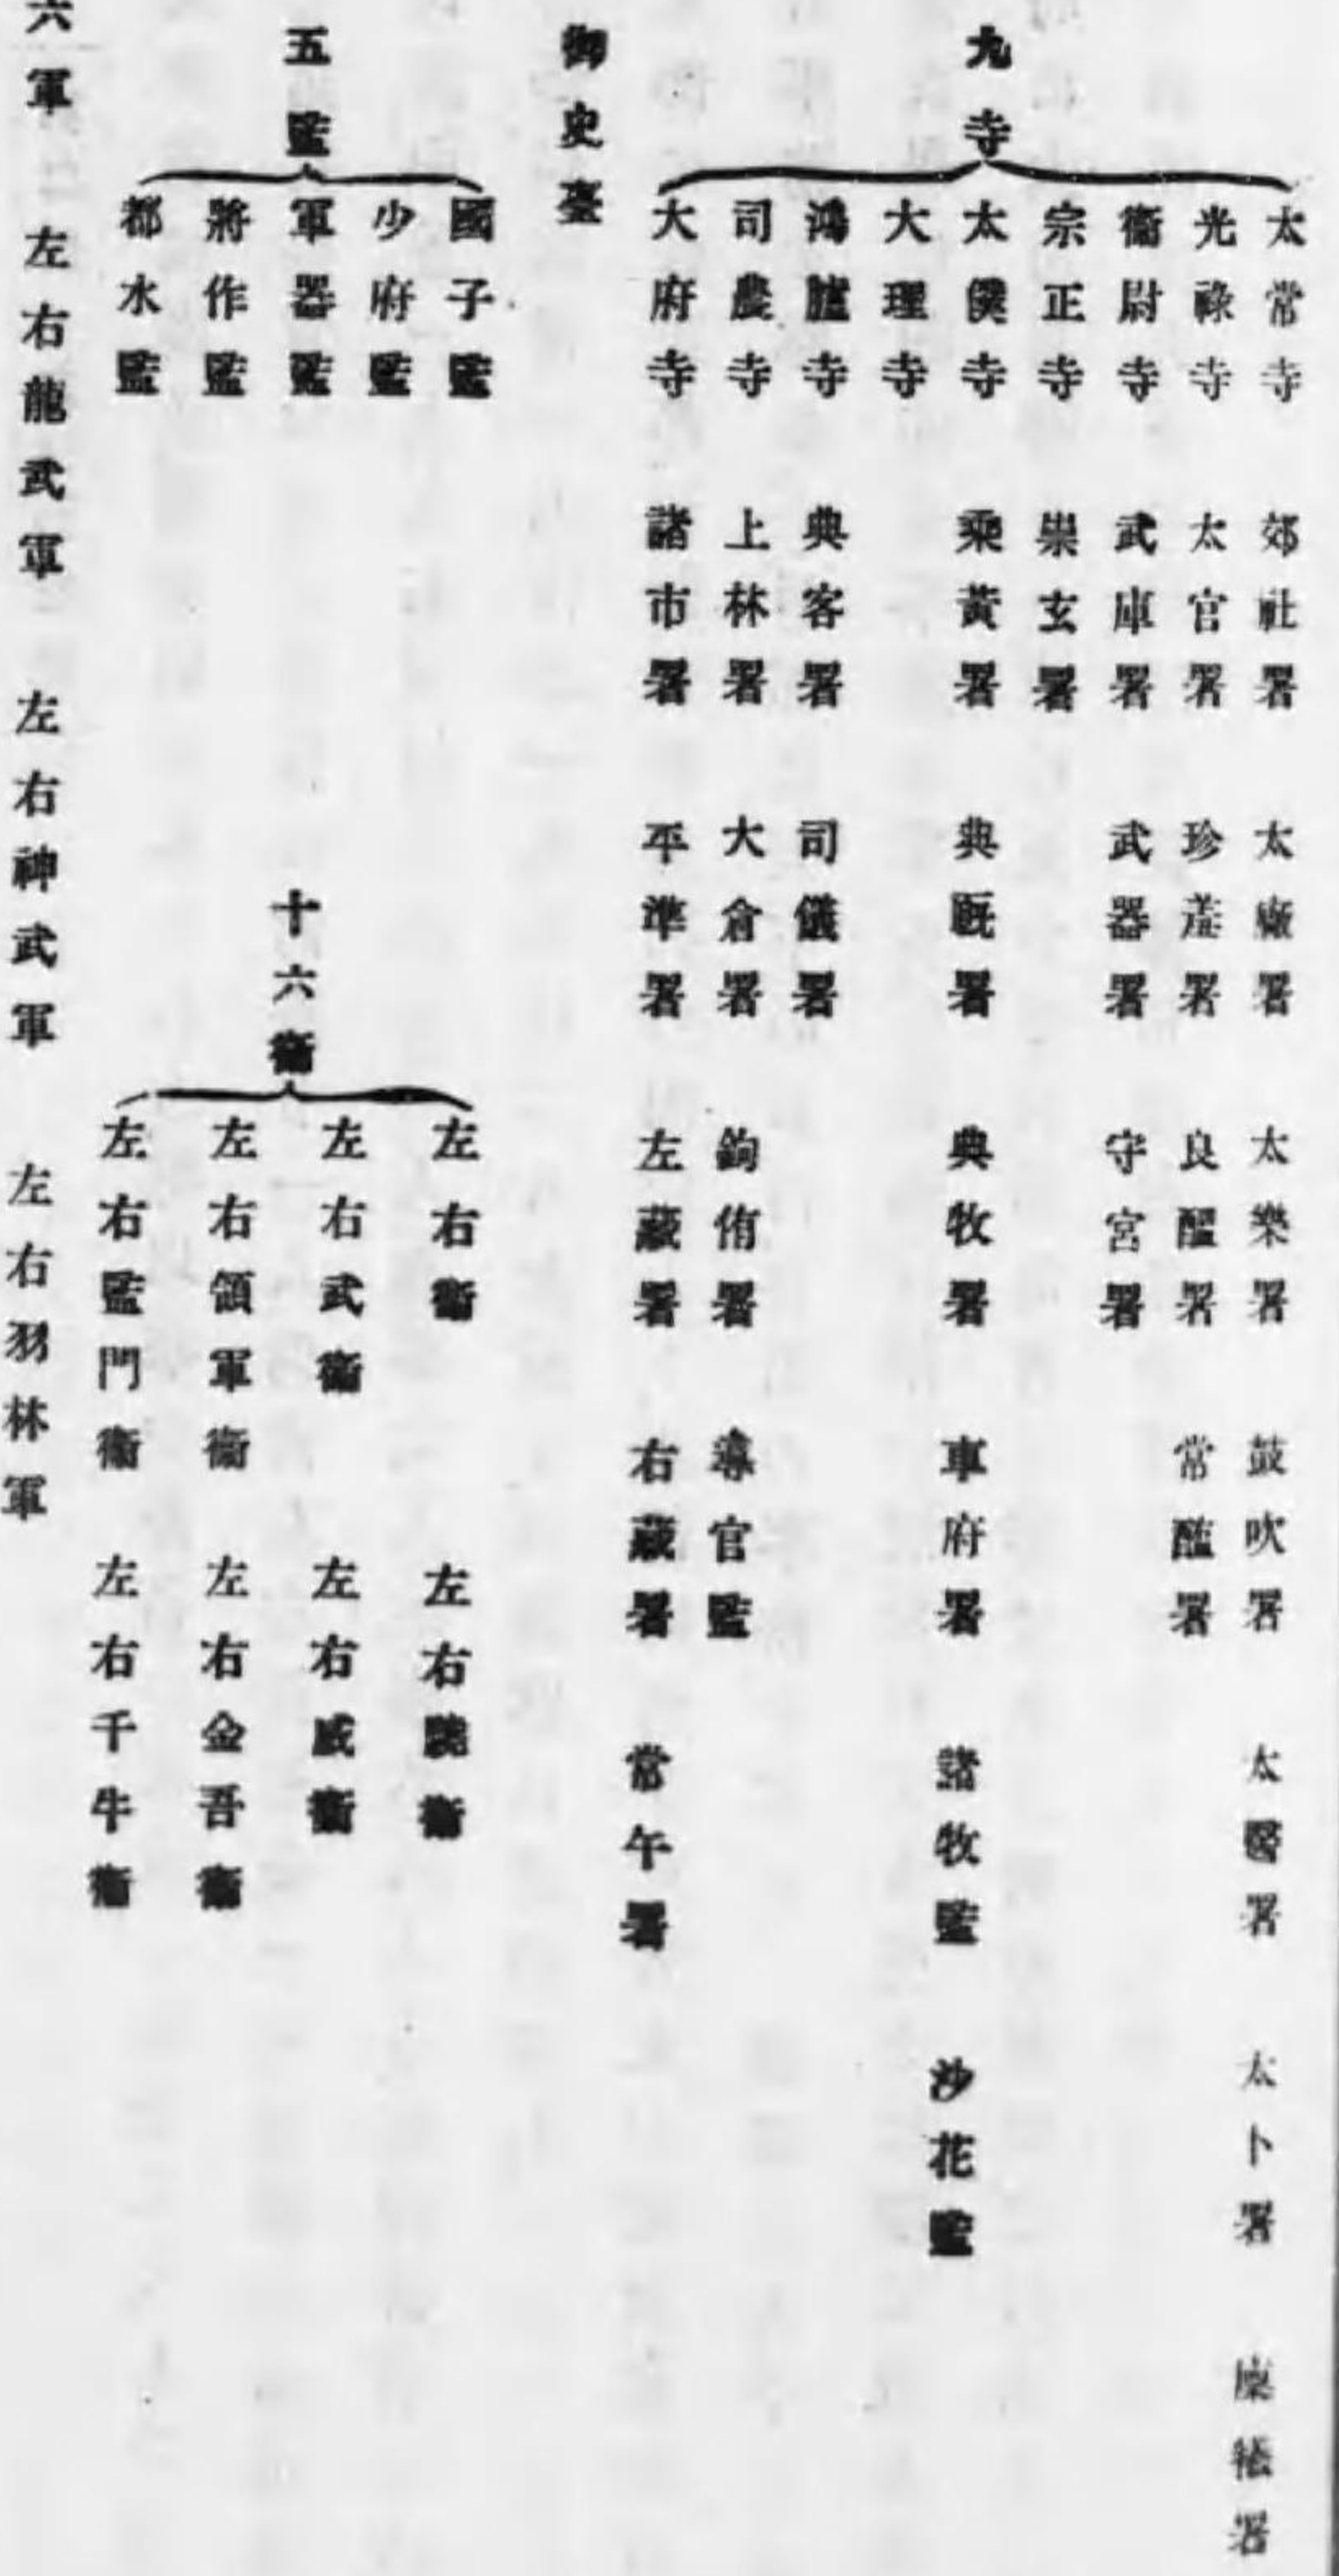 九寺
太常寺 郊社署 太廟署 太樂署 鼓吹署 太醫署 太卜署 廩犧署
光祿寺 太官署 珍羞署 良醞署 常醢署
衞尉寺 武庫署 武器署 守宮署
宗正寺 崇玄署
太僕寺 乘黃署 典厩署 典牧署 車府署 諸牧監 沙花監
大理寺
鴻臚寺 典客署 司儀署
司農寺 上林署 大倉署 鉤侑署 導官監
大府寺 諸市署 平準署 左藏署 右藏署 常午署
御史臺
五監
國子監
少府監
軍器監
將作監
都水監
十六衞
左右衞 左右驍衞
左右武衞 左右威衞
左右領軍衞 左右金吾衞
左右監門衞 左右千牛衞
六軍 左右龍武軍 左右神武軍 左右羽林軍